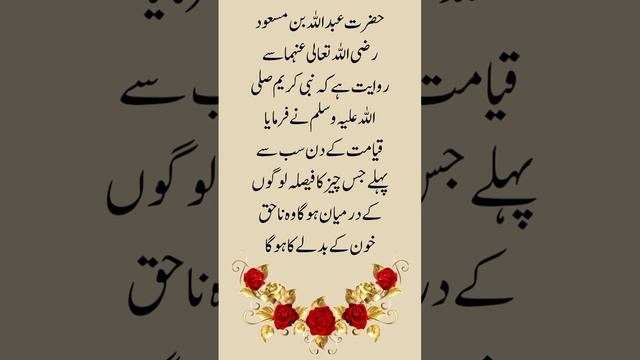 حضرت عبداللہ بن مسعود
رضی اللہ تعالی عنہما سے
روایت ہے کہ نبی کریم صلی
اللہ علیہ وسلم نے فرمایا
قیامت کے دن سب سے
پہلے جس چیز کا فیصلہ لوگوں
کے درمیان ہوگا وہ ناحق
خون کے بدلے کا ہوگا